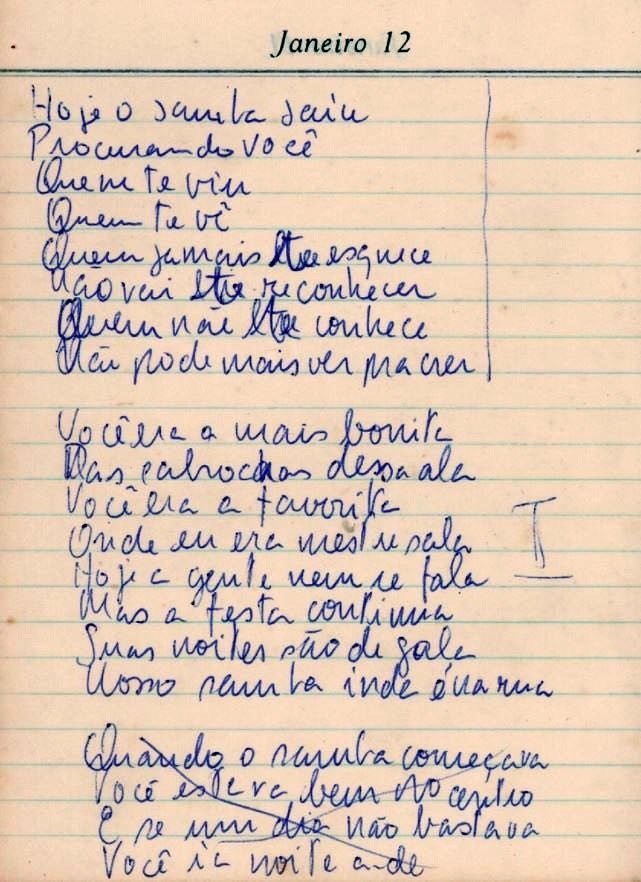 Janeiro 12
Hoje o samba saiu
Procurando você
Quem te viu
Quem te vê
Quem jamais te esquece
Não vai te reconhecer
Quem não te conhece
Não pode mais ver pra crer
Você era a mais bonita
Das cabrochas dessa ala
Você era a favorita
Onde eu era mestre sala
I
Hoje a gente nem se fala
Mas a festa continua
Suas noites são de gala
Nosso samba inda é na rua
Quando o samba começava
Você estava bem no centro
E se um dia não bastava
Você ia noite